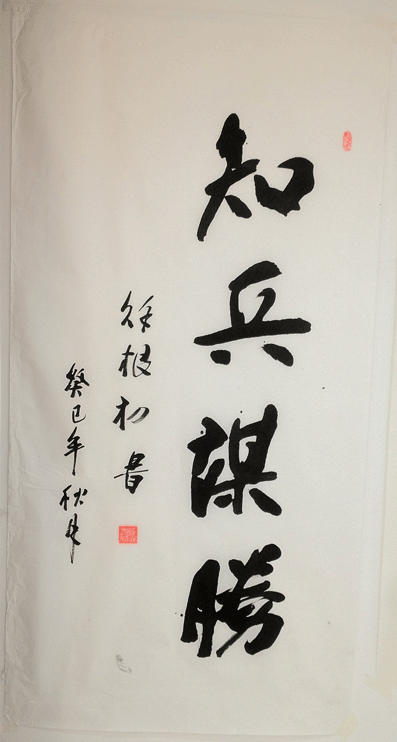 知兵謀勝
徐根初書
癸巳年秋月